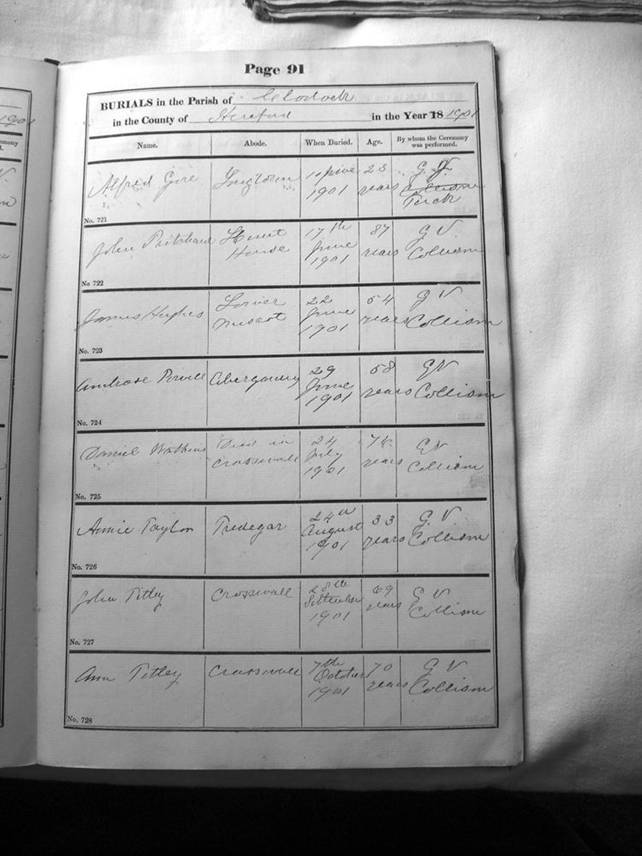 Page 91
BURIALS in the Parish of Clodock
in the County of Hereford in the Year 18 1901
Name. Abode. When Buried. Age. By whom the Ceremony was performed.
Alfred Gore Longtown 1901 23 years G. V.
No. 721
John Pritchard House 17th June 1901 87 years G V Collison
No 722
James Hughes Lower 22 June 1901 54 years G V Collison
No. 723
Ambrose Powell Abergavenny 29 June 1901 58 years G V Collison
No. 724
Daniel Watkins Died in Crasswall 24 July 1901 years G V Collison
No. 725
Annie Taylor Tredegar 24th August 1901 33 years G. V Collison
No. 726
John Titley Crasswall 28th September 1901 69 years G V Collison
No. 727
Ann Titley Crasswall 7th October 1901 70 years G V Collison
No. 728